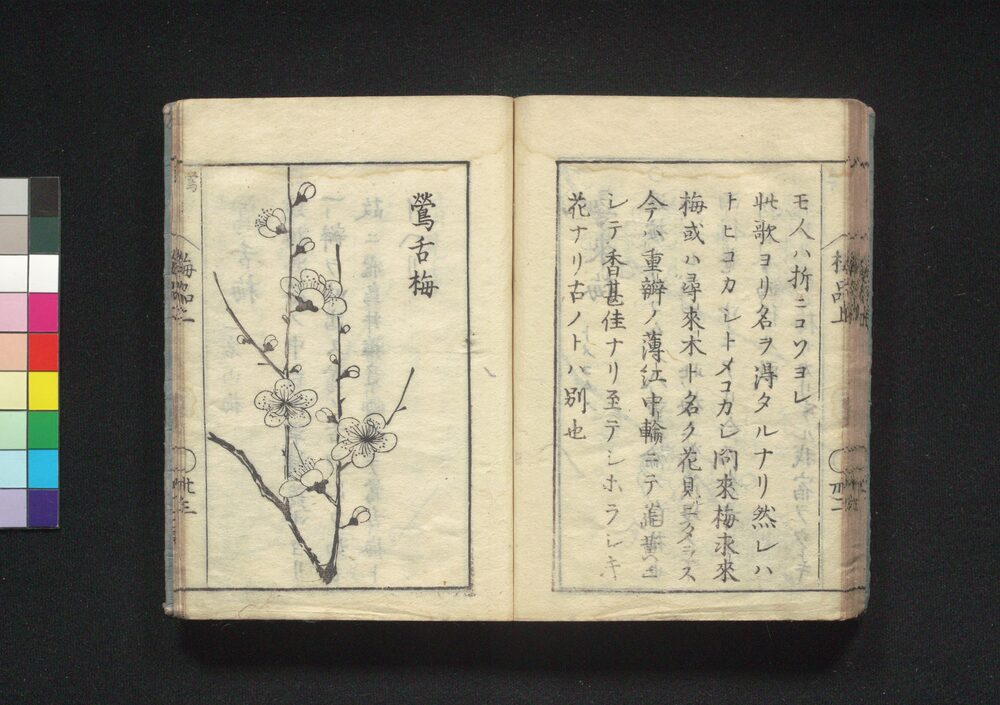 モ人ハ折ニコソヨレ
此歌ヨリ名ヲ得タルナリ然レハ
トヒコカシトメコカシ問來梅求來
梅或ハ尋來木ト名ク花
今ハ重瓣ノ薄紅中輪ニテ
シテ香甚佳ナリ至テシホラシキ
花ナリ古ノトハ別也
梅品上
卅二
鶯舌梅
梅品上
卅三